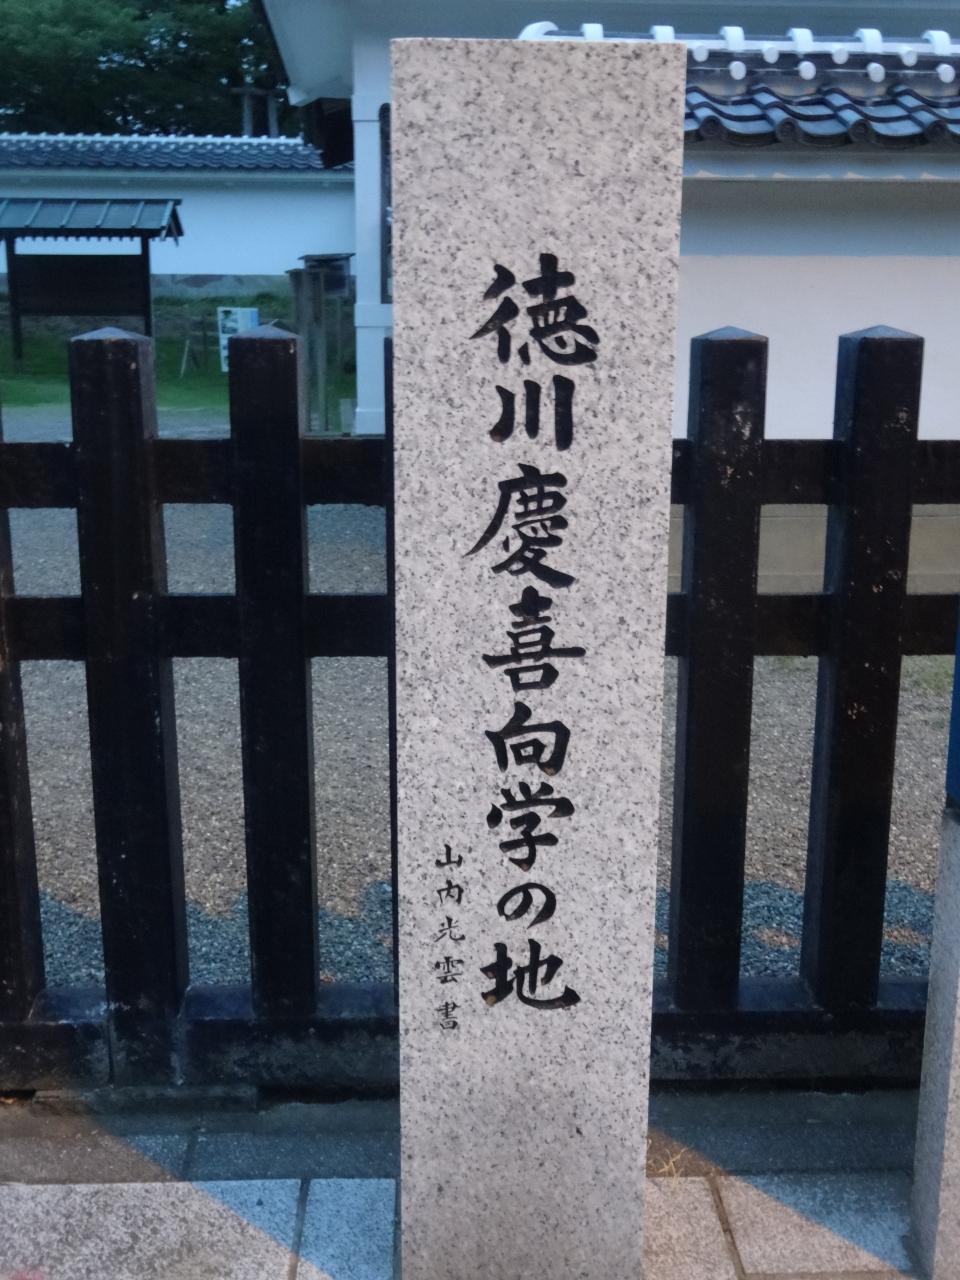 徳川慶喜向学の地
山内光雲書